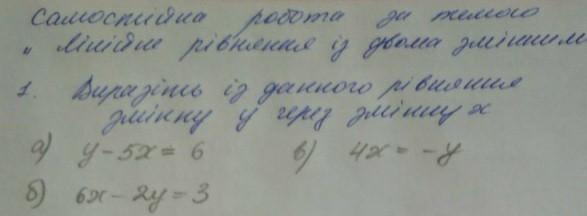 Самостійна робота за темою
„ Лінійне рівняння із двома змінним
1. Виразіть із данного рівняння
змінну y через змінну x
а) y - 5x = 6 в) 4x = -y
б) 6x - 2y = 3